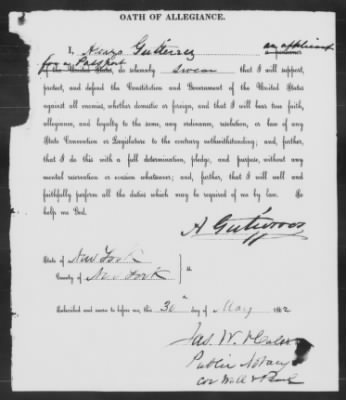 OATH OF ALLEGIANCE.
I, Gutierrez an applicant
for a Passport
of the United States, do solemnly swear that I will support,
protect, and defend the Constitution and Government of the United States
against all enemies, whether domestic or foreign, and that I will bear true faith,
allegiance, and loyalty to the same, any ordinance, resolution, or law of any
State Convention or Legislature to the contrary notwithstanding; and, further,
that I do this with a full determination, pledge, and purpose, without any
mental reservation or evasion whatsoever; and, further, that I will well and
faithfully perform all the duties which may be required of me by law. So
help me God.
A Gutierrez
State of New York
County of New York } ss
Subscribed and sworn to before me, this 30th day of May 1862
Jas. W.
Public Notary
cor Wall &